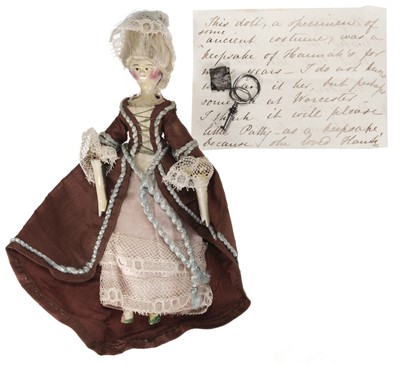 This doll, a specimen of
some
ancient costume, was a
keepsake of Hannah's for
years - I do not know
it her, but perhaps
some at Worcester -
I think it will please
little Patty - as a keepsake
because she loved Hannah